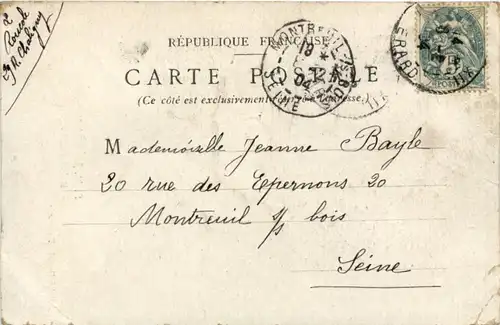 RÉPUBLIQUE FRANÇAISE
CARTE POSTALE
(Ce côté est exclusivement réservé à l'adresse.)
Mademoiselle Jeanne Bayle
20 rue des Epernons 20
Montreuil s/s bois
Seine
MONTREUIL-Ss-BOIS
SEINE